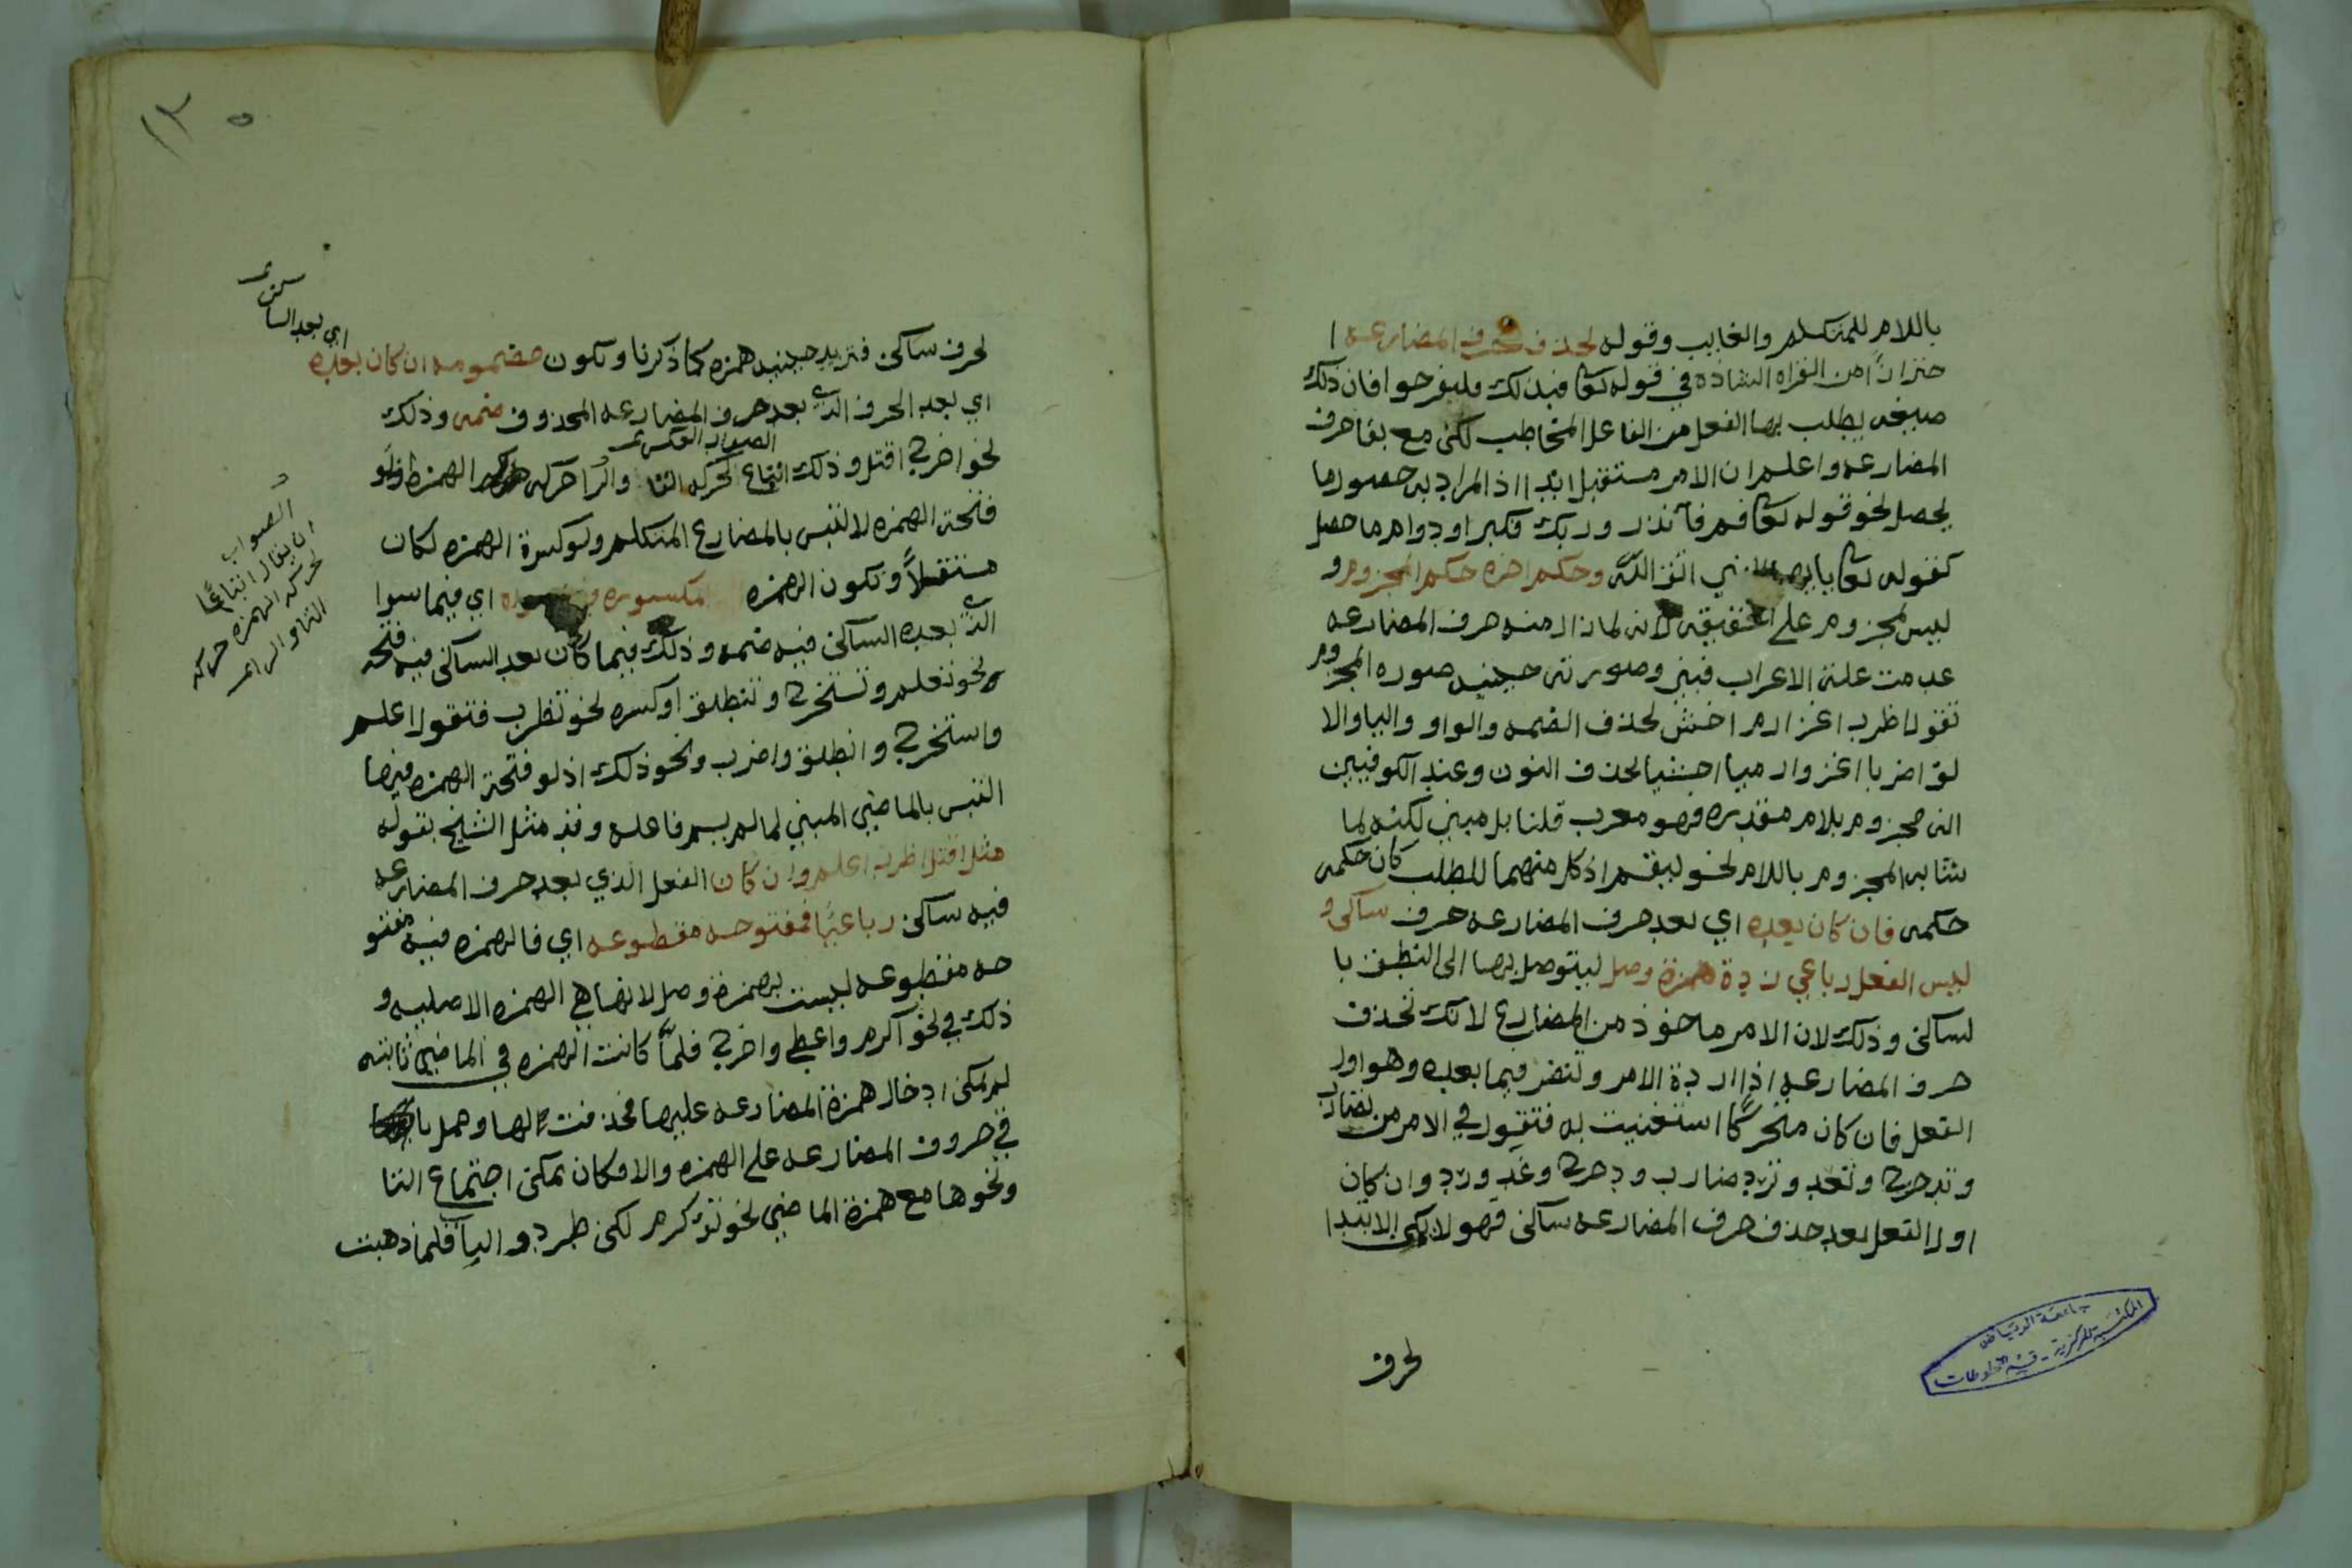 باللام للمتكلم والغايب وقوله لحذف حرف المضارعه ا
حترازًا من القراه الشاذه في قوله تعا فبذلك فليفرحوا فان ذلك
صيغه يطلب بها الفعل من الفاعل المخاطب لكن مع بقا حرف
المضارعه واعلم ان الامر مستقبل ابدا اذ المراد به حصول ما
يحصل نحو قوله تعا قم فآنذر وربك فكبر او دوام ما حصل
كقوله تعا يايها النبي اتق اللّه وحكم اخره حكم المجزوم و
ليس لمجزوم على الحقيقه لانه لما زال منه حرف المضارعه
عدمت علة الاعراب فبني وصورته حينيد صوره المجزوم
تقول اظرب اغز ارم اخش لحذف الضمه والواو واليا والا
لف اضربا اغزوا ارميا اخشيا لحذف النون وعند الكوفيين
انه مجزوم بلام مقدره فهو معرب قلنا بل مبني لكنه لما
شابه المجزوم باللام نحو ليقم اذ كل منهما للطلب كان حكمه
حكمه فان كان بعده اي بعد حرف المضارعه حرف ساكن و
ليس الفعل رباعي زدة همزة وصل ليتوصل بها الى النطق با
لساكن وذلك لان الامر ماخوذ من المضارع لانك تحذف
حرف المضارعه اذا اردة الامر وتنضر فيما بعده وهو اول
الفعل فان كان متحركًا استغنيت به فتقول في الامر من تضارب
وتدحرج وتعد وترد ضارب ودحرج وعد ورد وان كان
اول الفعل بعد حذف حرف المضارعه ساكن فهو لا يمكن الابتدا
لحرف
جامعة الرياض
المكتبة المركزية - قسم المخطوطات
١٣ ٥
اي بعد الساكن
لحرف ساكن فتزيد حينيد همزه كما ذكرنا وتكون مضمومه ان كان بعده
اي بعد الحرف الذي بعد حرف المضارعه المحذوف ضمه وذلك
الصواب العكس
نحو اخرج اقتل وذلك اتباع لحركه التا والرا حركه الهمزه ولو
فتحة الهمزه لالتبس بالمضارع المتكلم ولو كسرة الهمزه لكان
مستثقلاً وتكون الهمزه مكسوره فيما سواه اي فيما سوا
الذي بعده الساكن فيه ضمه وذلك فيما كان بعد الساكن فيه فتحه
نحو تعلم وتستخرج وتنطلق او كسره نحو تظرب فتقول اعلم
واستخرج وانطلق واضرب ونحو ذلك اذ لو فتحة الهمزه فيها
التبس بالماضي المبني لما لم يسم فاعله وقد مثل الشيخ بقوله
مثل اقتل اظرب اعلم وان كان الفعل الذي بعد حرف المضارعه
فيه ساكن رباعيًا فمفتوحه مقطوعه اي فالهمزه فيه مفتو
حه مقطوعه ليست بهمزة وصل لانها هي الهمزه الاصليه و
ذلك في نحو آكرم واعطي واخرج فلمَّا كانت الهمزه في الماضي ثابته
لم يمكن ادخال همزة المضارعه عليها فحذفت لها وحمل با
في حروف المضارعه على الهمزه والا فكان يمكن اجتماع التا
ونحوها مع همزة الماضي نحو تؤكرم لكن طردو الباٌ فلما ذهبت
الصواب
ان يقال اتباعًا
لحركه الهمزه حركه
التا والرا